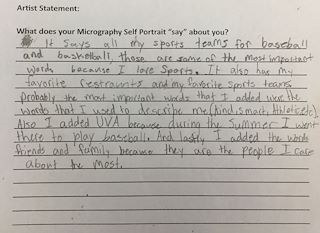 Artist Statement:
What does your Micrography Self Portrait "say" about you?
It says all my sports teams for baseball
and basketball, those are some of the most important
words because I love sports. It also has my
favorite restraunts and my favorite sports teams
probably the most important words that I added were the
words that I used to describe me (Kind, smart, Athletic, etc)
Also I added UVA because during the summer I went
there to play baseball. And lastly I added the words
friends and family because they are the people I care
about the most.